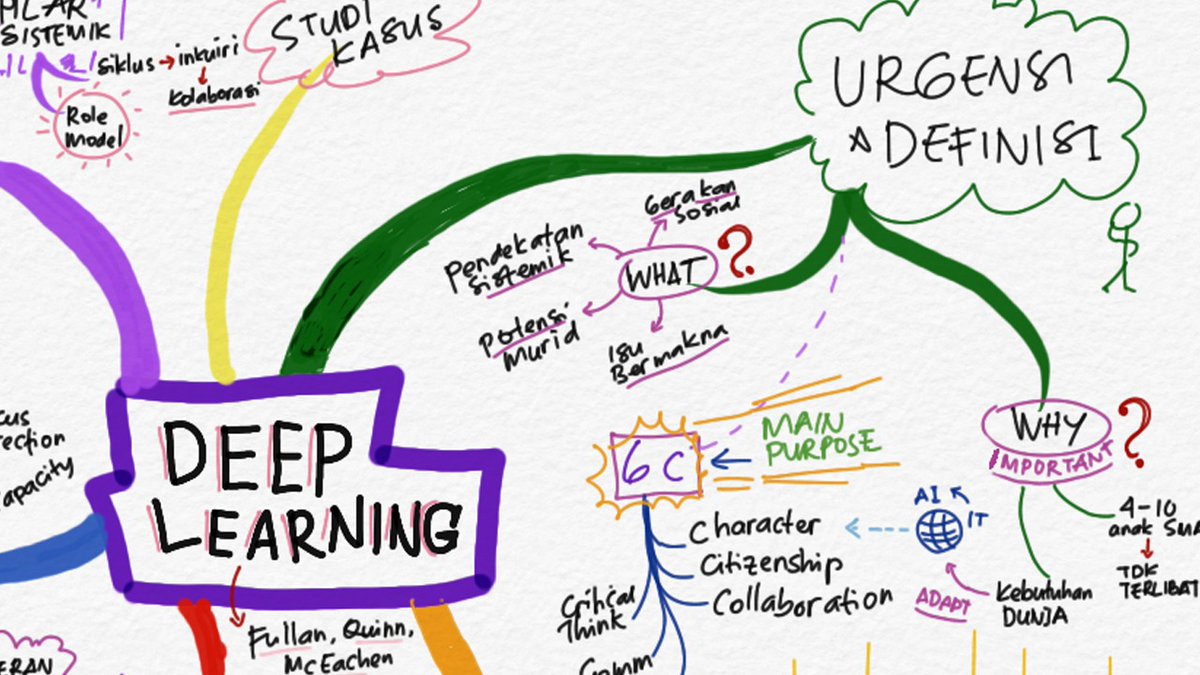 SISTEMIK
siklus → inkuiri
Kolaborasi
Role
Model
STUDI
KASUS
URGENSI
& DEFINISI
Gerakan
Sosial
Pendekatan
Sistemik
WHAT ?
Potensi
Murid
Isu
Bermakna
WHY ?
IMPORTANT
MAIN
PURPOSE
6 C
AI
IT
4-10
anak
TDK
ADAPT
Kebutuhan
DUNIA
Character
Citizenship
Collaboration
Critical
Think
Comm
DEEP
LEARNING
Fullan, Quinn,
McEachen